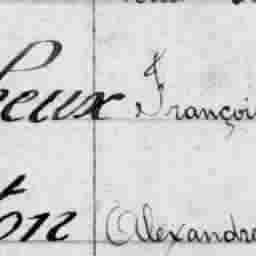 heux Françoi
ton Alexandre